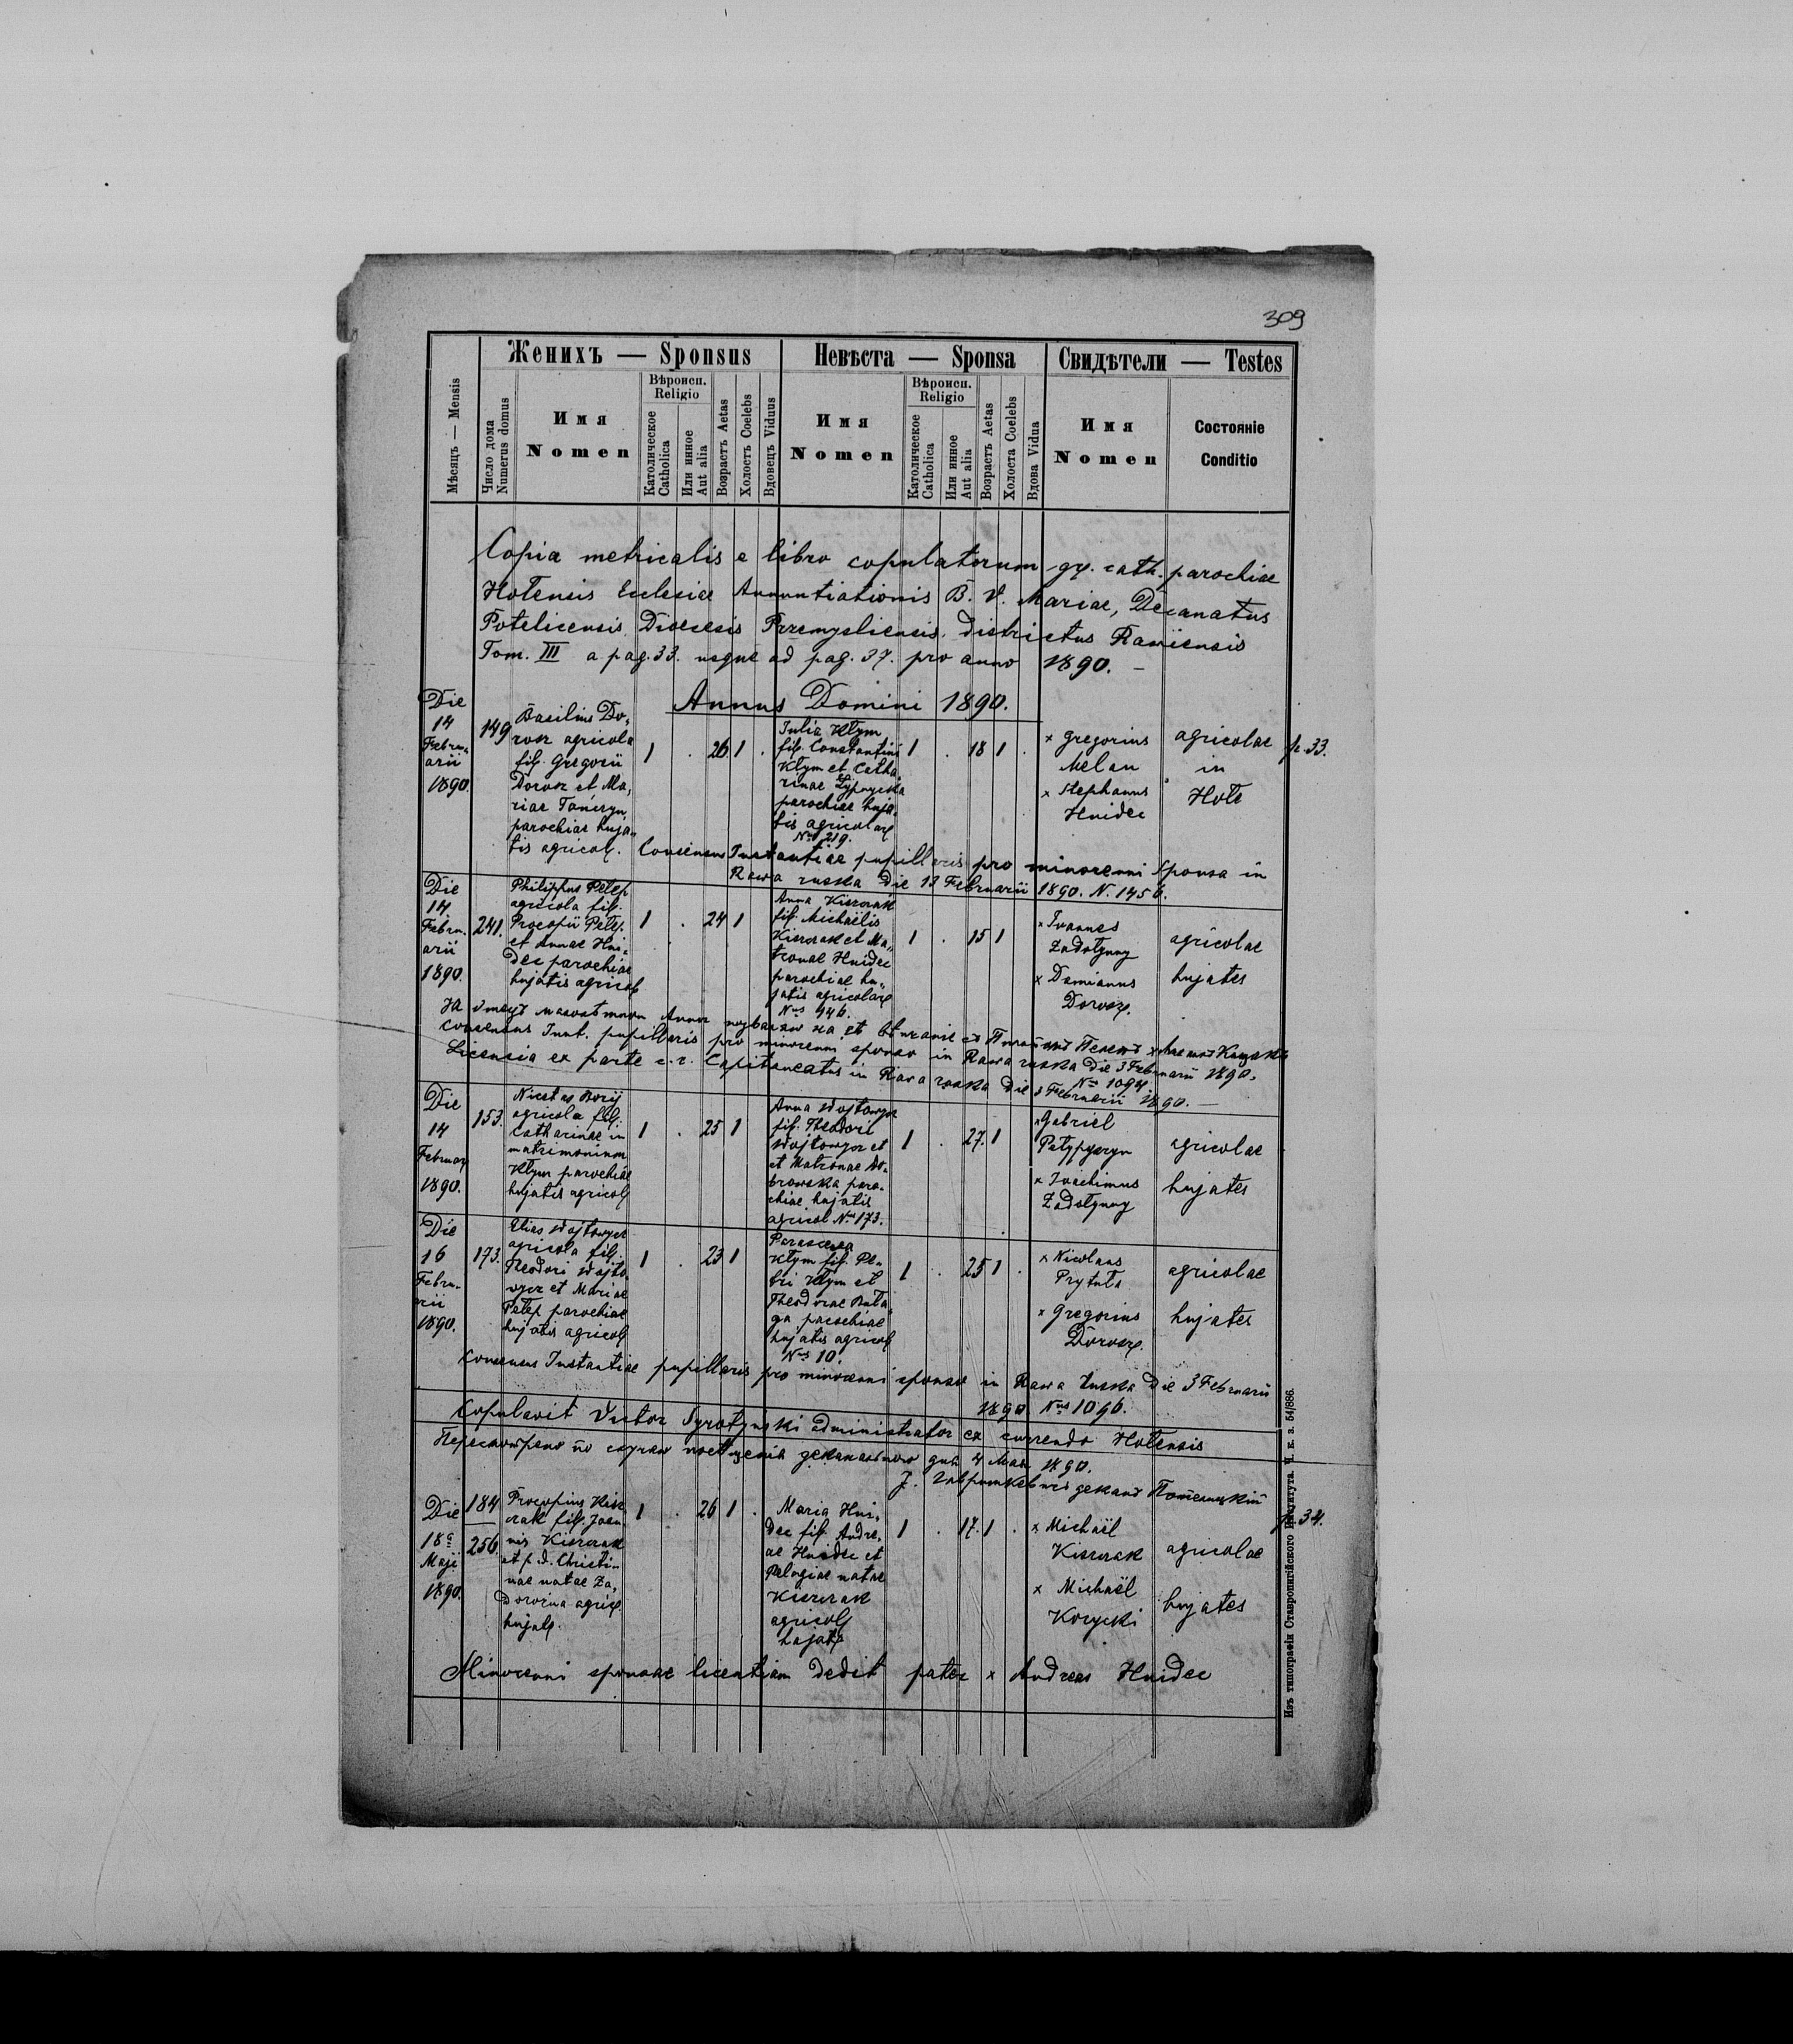 309
Женихъ — Sponsus
Невѣста — Sponsa
Свидѣтели — Testes
Мѣсяцъ — Mensis
Число дома
Numerus domus
Имя
Nomen
Вѣроисп.
Religio
Католическое
Catholica
Или инное
Aut alia
Возрастъ Aetas
Холостъ Coelebs
Вдовецъ Viduus
Имя
Nomen
Вѣроисп.
Religio
Католическое
Catholica
Или инное
Aut alia
Возрастъ Aetas
Холоста Coelebs
Вдова Vidua
Имя
Nomen
Состояніе
Conditio
Copia metricalis e libro copulatorum gr. cath. parochiae
Hotensis Eclesiae Annuntiationis B. V. Mariae, Decanatus
Potelicensis Dioecesis Przemysliensis. districtus Raviensis
Tom. III a pag. 33. usque ad pag. 37. pro anno 1890. —
Annus Domini 1890.
Die
14
Febru„
arii
1890.
149
Basilius Do„
rosz agricola
fil. Gregorii
Dorosz et Ma„
riae
parochiae huja„
tis agricol.
1 . 26 1 .
Julia Kłym
fil. Constantini
Kłym et Catha„
rinae
parochiae huja„
tis agricolae
Nus 219.
1 . 18 1 .
x Gregorius
Melan
x Stephanus
Hnidec
agricolae
in
Hote
p. 33.
Consensus Instantiae pupillaris pro minorenni Sponsa in
Rawa ruska die 13 Februarii 1890. N. 1456.
Die
14
Febru„
arii
1890.
241.
Philippus Pełep
agricola fil.
Procopii Pełep.
et Annae Hni„
dec parochiae
hujatis agricol
1 . 24 1
Anna Kiszczak
fil. Michaëlis
Kiszczak et Ma„
tronae Hnidec
parochiae hu„
jatis agricolae
Nus 446.
1 . 15 1
x Joannes
Zadołynny
x Damianus
Dorosz.
agricolae
hujates
consensus Inst. pupillaris pro minorenni sponso in Rawa ruska die 3 Februarii 1890.
Nus 1094.
Licensia ex parte c. r. Capitaneatus in Rawa ruska die 3 Februarii 1890. —
Die
14
Februar
1890.
153.
Nicetas Boryj
agricola fil.
Catharinae in
matrimonium
Kłym parochiae
hujatis agricol
1 . 25 1
Anna Wojtowycz
fil. Theodori
Wojtowycz et
et Matronae Do„
browska paro„
chiae hujatis
agricol Nus 173.
1 . 27. 1
x Gabriel
x Joachimus
Zadołynny
agricolae
hujates
Die
16
Febru„
arii
1890.
173.
Elias Wojtowycz
agricola fil.
Theodori Wojto„
wycz et Mariae
Pełep parochiae
hujatis agricol
1 . 23 1
Parascewa
Kłym fil. Pe„
tri Kłym et
Theodorae
parochiae
hujatis agricol
Nus 10.
1 . 25 1 .
x Nicolaus
Prytuła
x Gregorius
Dorosz.
agricolae
hujates
Consensus Instantiae pupillaris pro minorenni sponso in Rawa Ruska die 3 Februarii
1890 Nus 1096.
Copulavit Victor Syrotyński administrator ex currendo Hotensis
4 Мая 1890.
Die
18a
Maji
1890.
184
256.
Procopius Kisz„
czak fil. Joan„
nis Kiszczak
et p. d. Christi„
nae natae Za„
agric.
hujat.
1 . 26 1 .
Maria Hni„
dec fil. Andre„
ae Hnidec et
Pelagiae natae
Kiszczak
agricol
hujat
1 . 17. 1 .
x Michaël
Kiszczak
x Michaël
Korycki
agricolae
hujates
p. 34.
Minorenni sponsae licentiam dedit pater x Andreas Hnidec
Изъ типографіи Ставропигійского Института. Ч. к. з. 54/886.